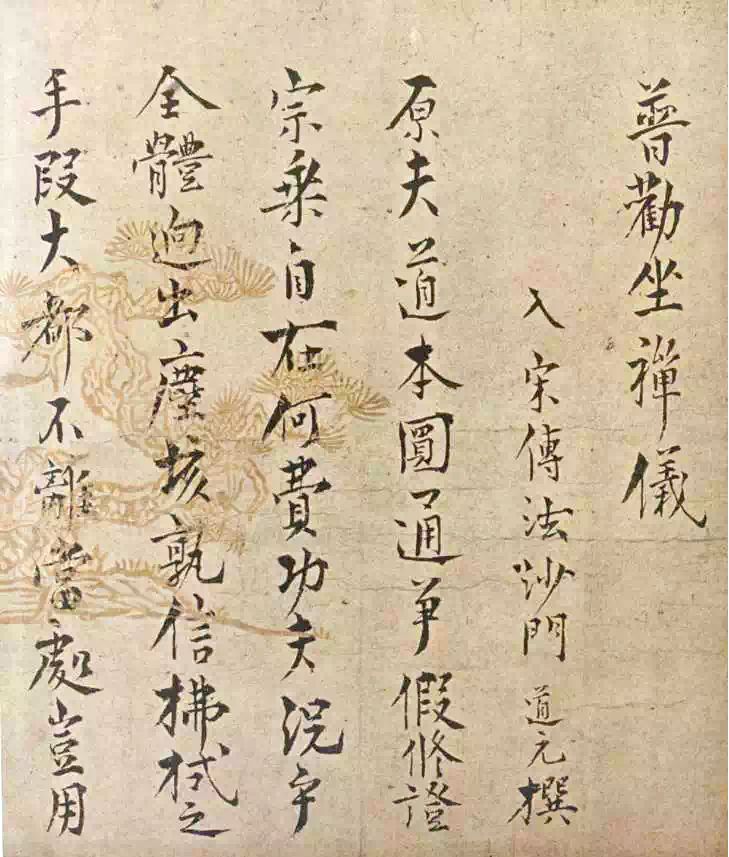 普勸坐禪儀
入宋傳法沙門道元撰
原夫道本圓通爭假修證
宗乘自在何費功夫況乎
全體逈出塵垓孰信拂拭之
手段大都不離當處豈用